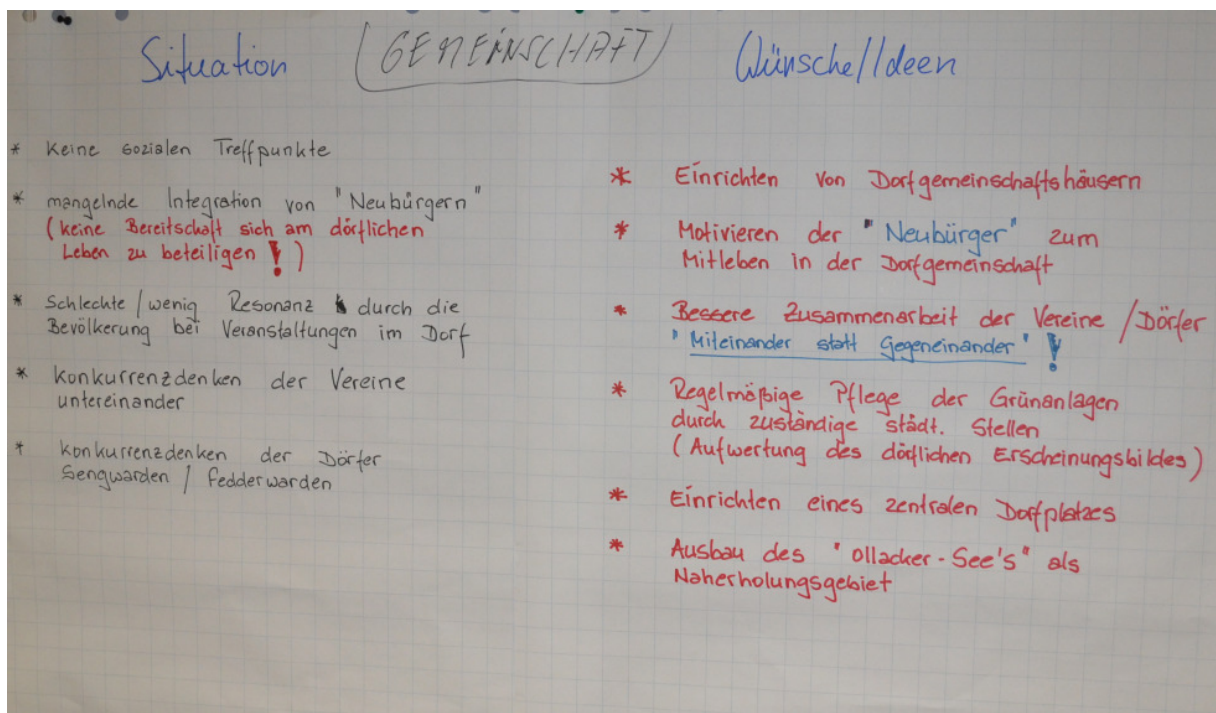 Situation
GEMEINSCHAFT
Wünsche/Ideen
* Keine sozialen Treffpunkte
* mangelnde Integration von "Neubürgern"
(keine Bereitschaft sich am dörflichen
Leben zu beteiligen !)
* Schlechte/wenig Resonanz durch die
Bevölkerung bei Veranstaltungen im Dorf
* Konkurrenzdenken der Vereine
untereinander
* Konkurrenzdenken der Dörfer
Sengwarden / Fedderwarden
* Einrichten von Dorfgemeinschaftshäusern
* Motivieren der "Neubürger" zum
Mitleben in der Dorfgemeinschaft
* Bessere Zusammenarbeit der Vereine /Dörfer
"Miteinander statt Gegeneinander" !
* Regelmäßige Pflege der Grünanlagen
durch zuständige städt. Stellen
(Aufwertung des dörflichen Erscheinungsbildes)
* Einrichten eines zentralen Dorfplatzes
* Ausbau des "Ollacker-See's" als
Naherholungsgebiet